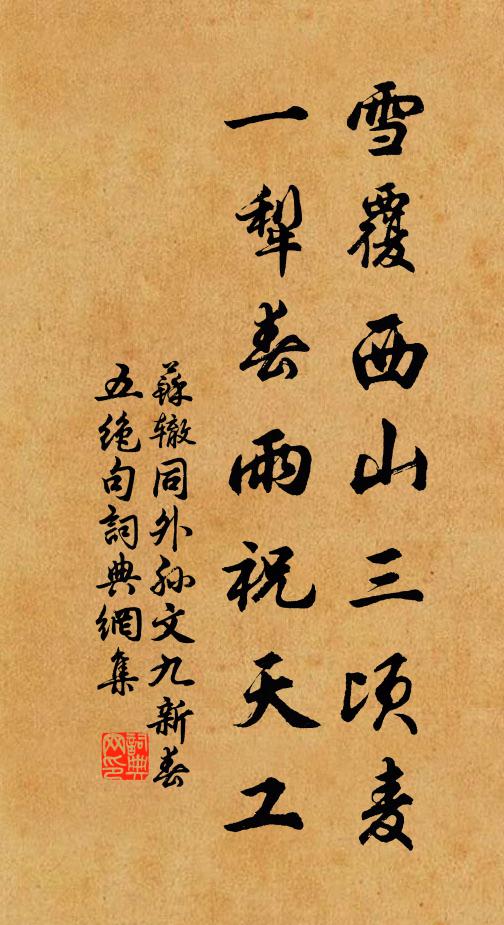 雪覆西山三顷麦
一犁春雨祝天工
蘇辙同外孙文九新春
五绝句詞典網集
詞典
网印